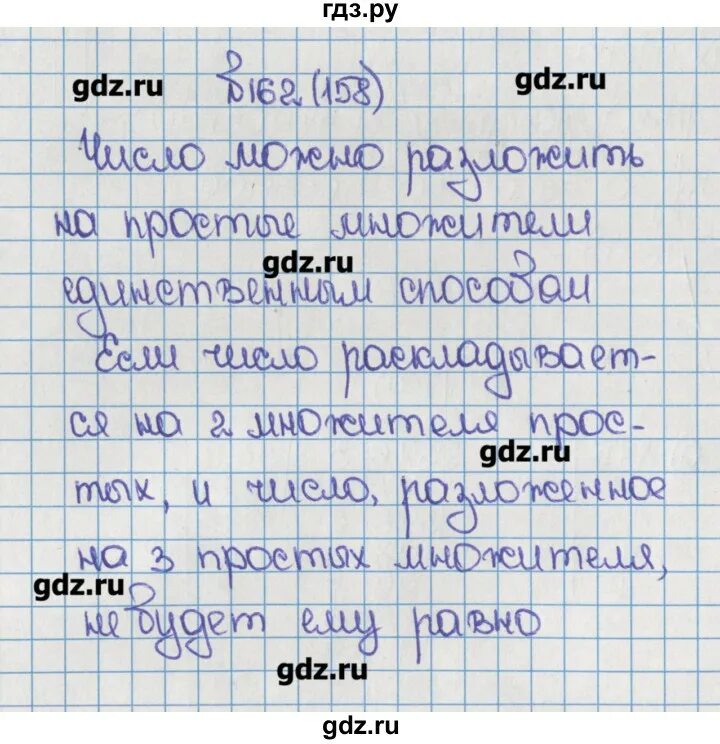 гдз.ру
gdz.ru
gdz.ru
№162 (158)
Число можно разложить
на простые множители
gdz.ru
единственным способам
Если число раскладывает-
ся на 2 множителя прос-
gdz.ru
тых, и число, разложенное
на 3 простых множителя,
gdz.ru
не будет ему равно
gdz.ru
gdz.ru